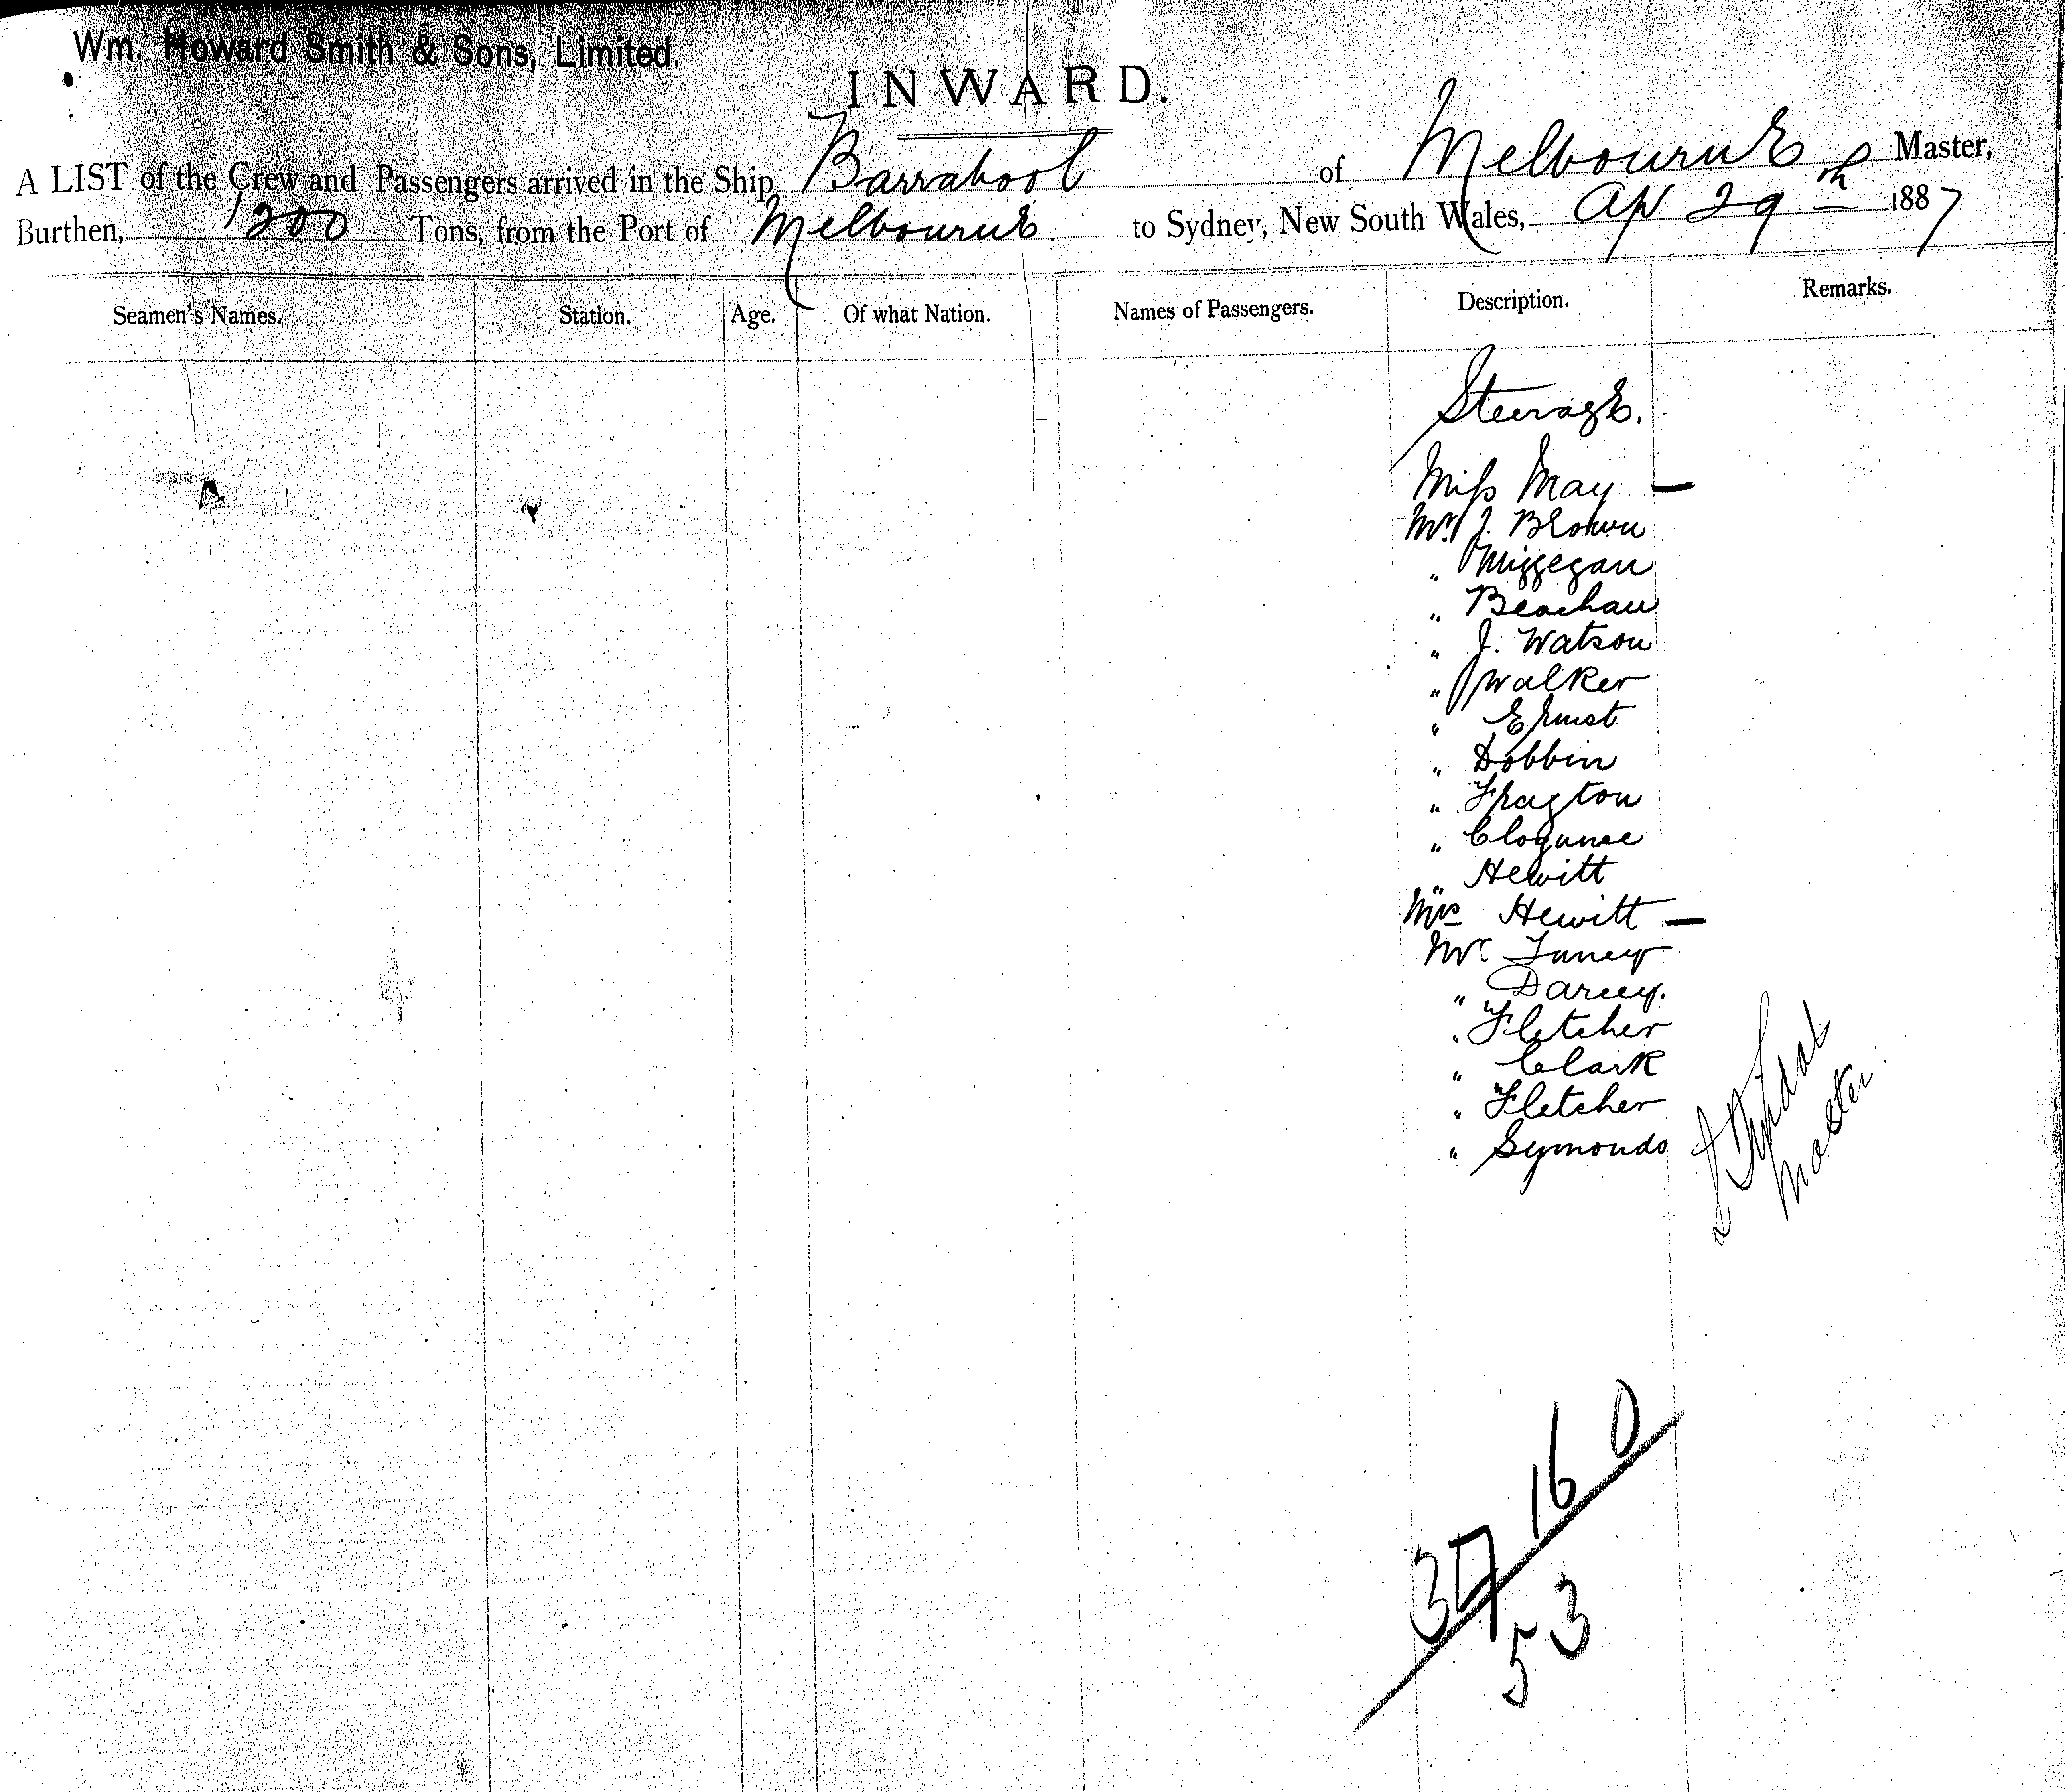 Wm. Howard Smith & Sons, Limited.
INWARD.
A LIST of the Crew and Passengers arrived in the Ship Barrabool of Melbourne Master,
Burthen, 1200 Tons, from the Port of Melbourne to Sydney, New South Wales, Ap 29th 1887
Seamen's Names. Station. Age. Of what Nation. Names of Passengers. Description. Remarks.
Steerage.
Miss May —
Mr J. Brown
" Miggegan
" Beachau
" J. Watson
" Walker
" Ernest
" Dobbin
" Fragton
"
" Hewitt
Mrs Hewitt —
Mr.
" Darcey.
" Fletcher
" Clark
" Fletcher
" Symonds
Master
16 0
37
53